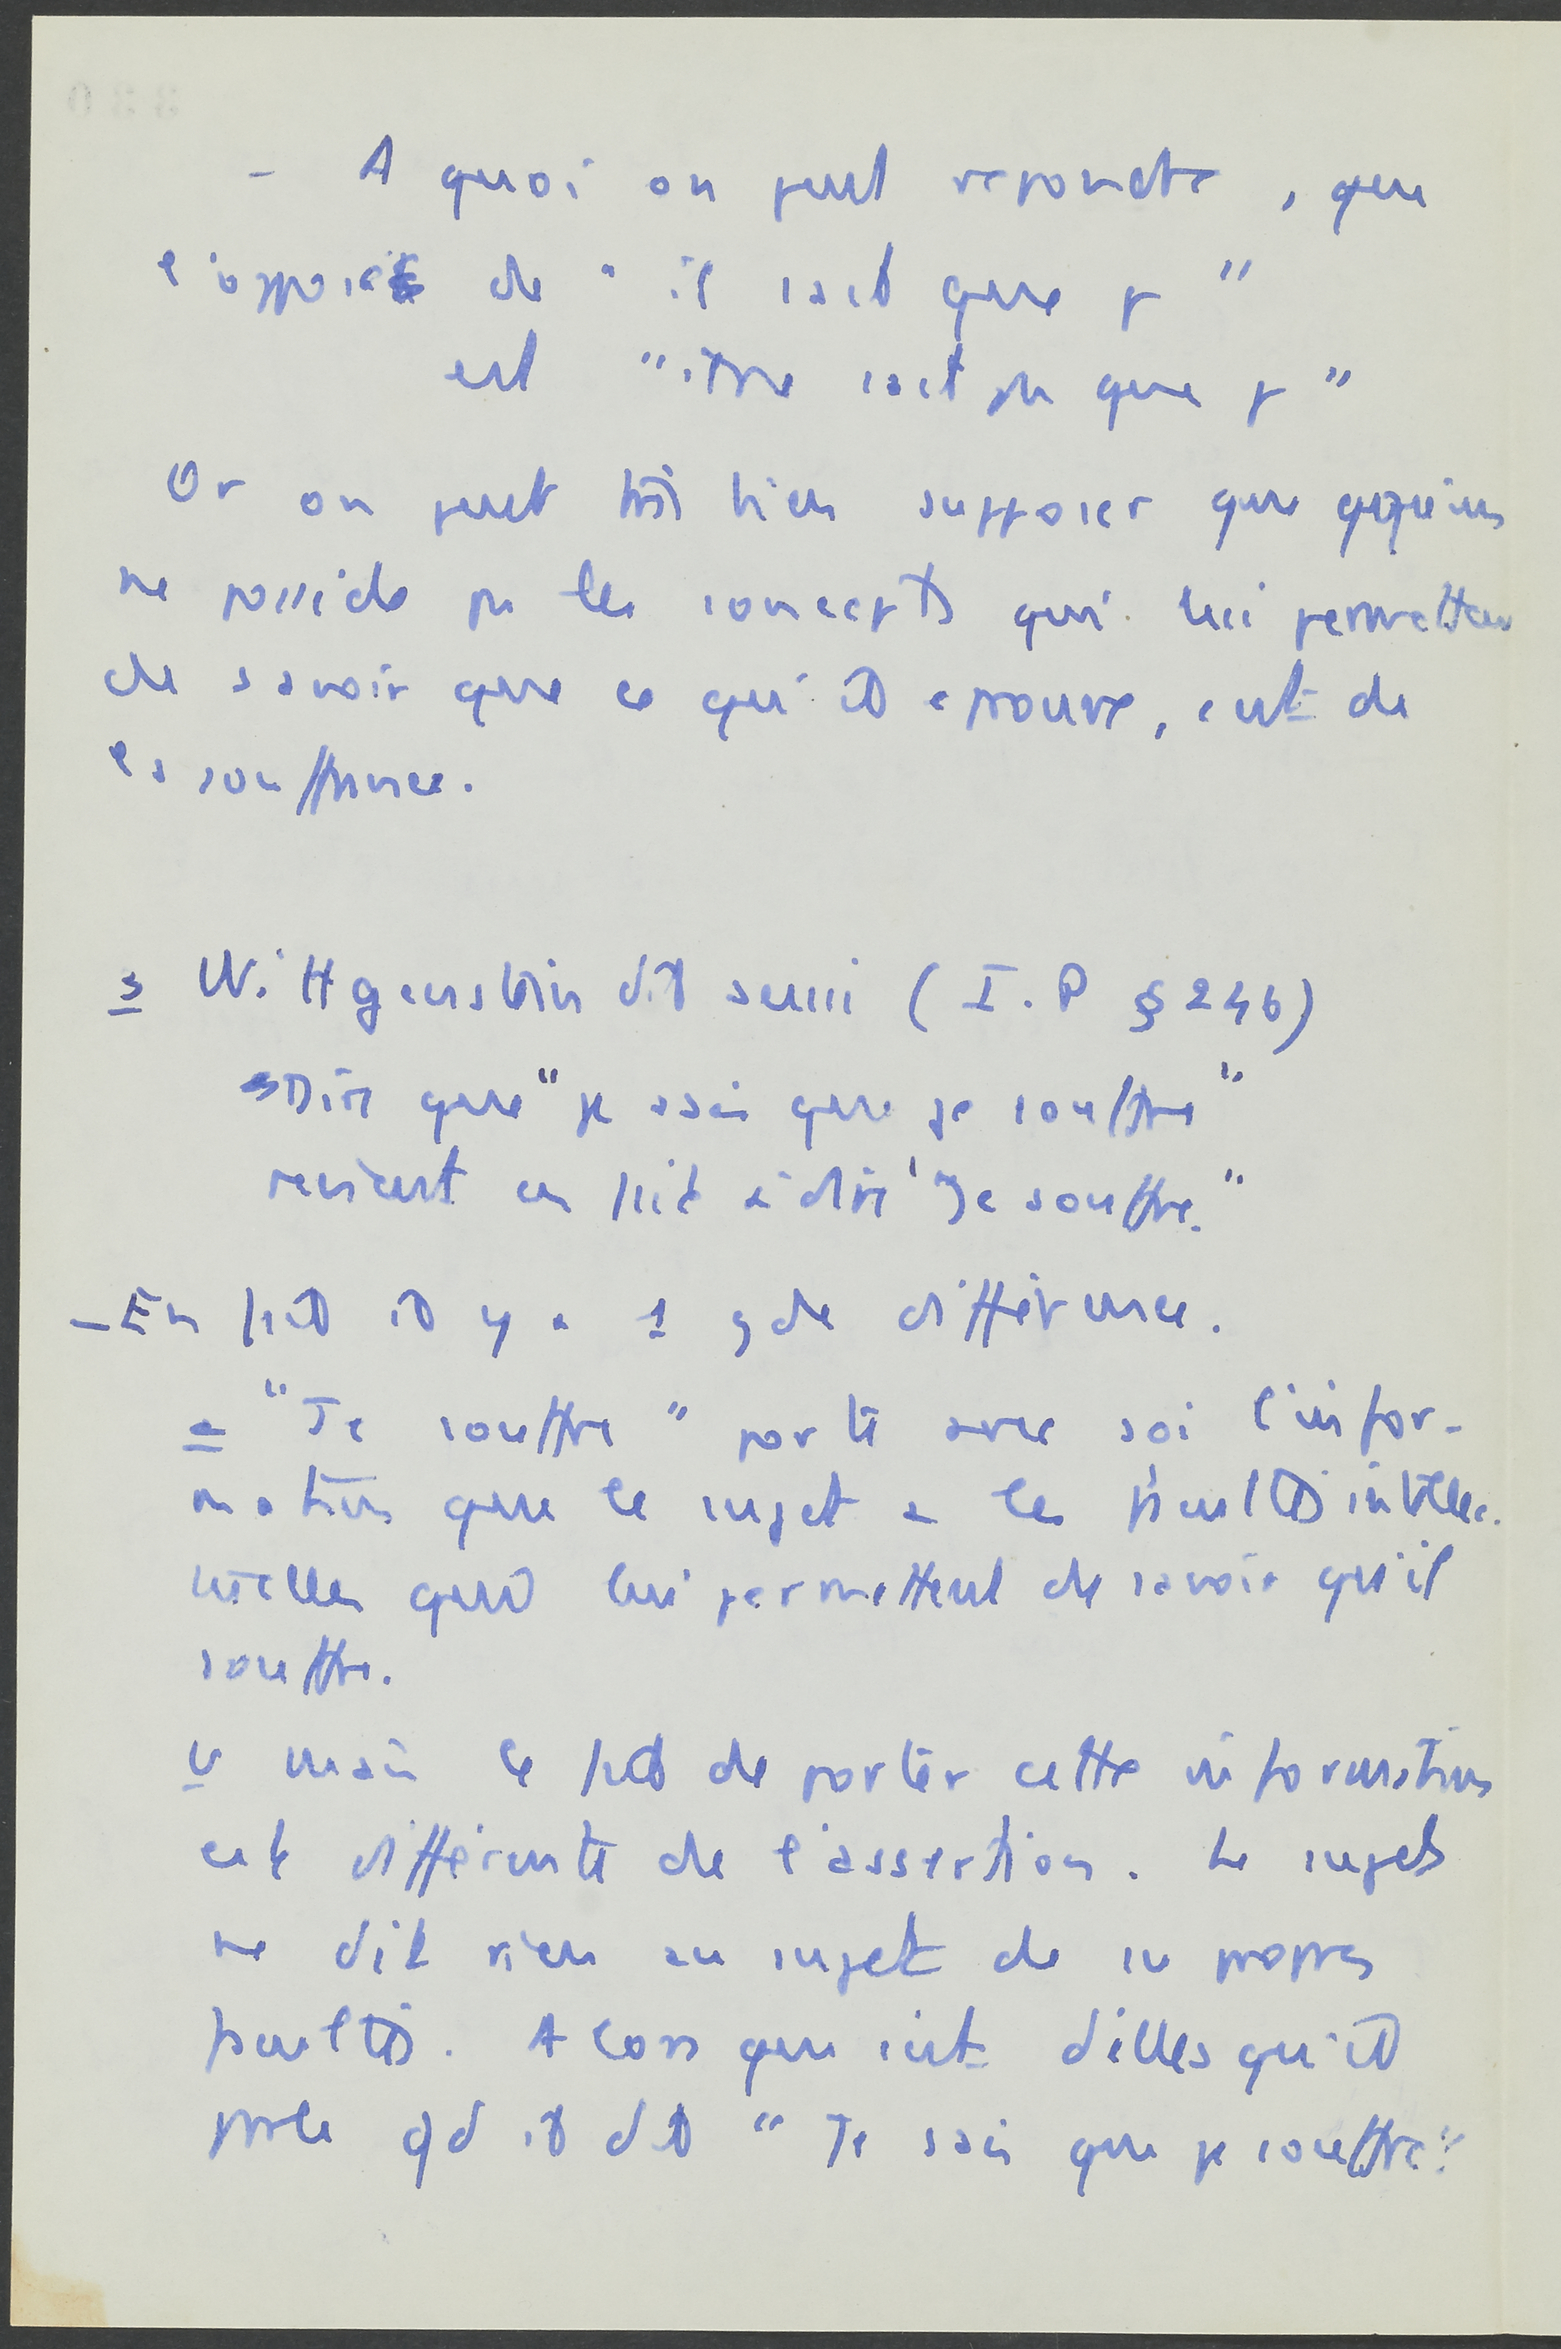 - A quoi on peut repondre, que
l'opposé de "il sait que p"
est "il ne sait pas que p"
Or on peut très bien supposer que qqu'un
ne possède pas les concepts qui lui permettent
de savoir que ce qu'il eprouve, c'est de
la souffrance.
3 Wittgenstein dit aussi (I.P § 246)
Dire que "je sais que je souffre"
revient en fait à dire "Je souffre."
- En fait il y a 1 gde différence.
a "Je souffre" porte avec soi l'infor-
mation que le sujet a les facultés intellec-
tuelles qui lui permettent de savoir qu'il
souffre.
b mais le fait de porter cette information
est différente de l'assertion. Le sujet
ne dit rien au sujet de ses propres
facultés. Alors que c'est d'elles qu'il
parle qd il dit "Je sais que je souffre".